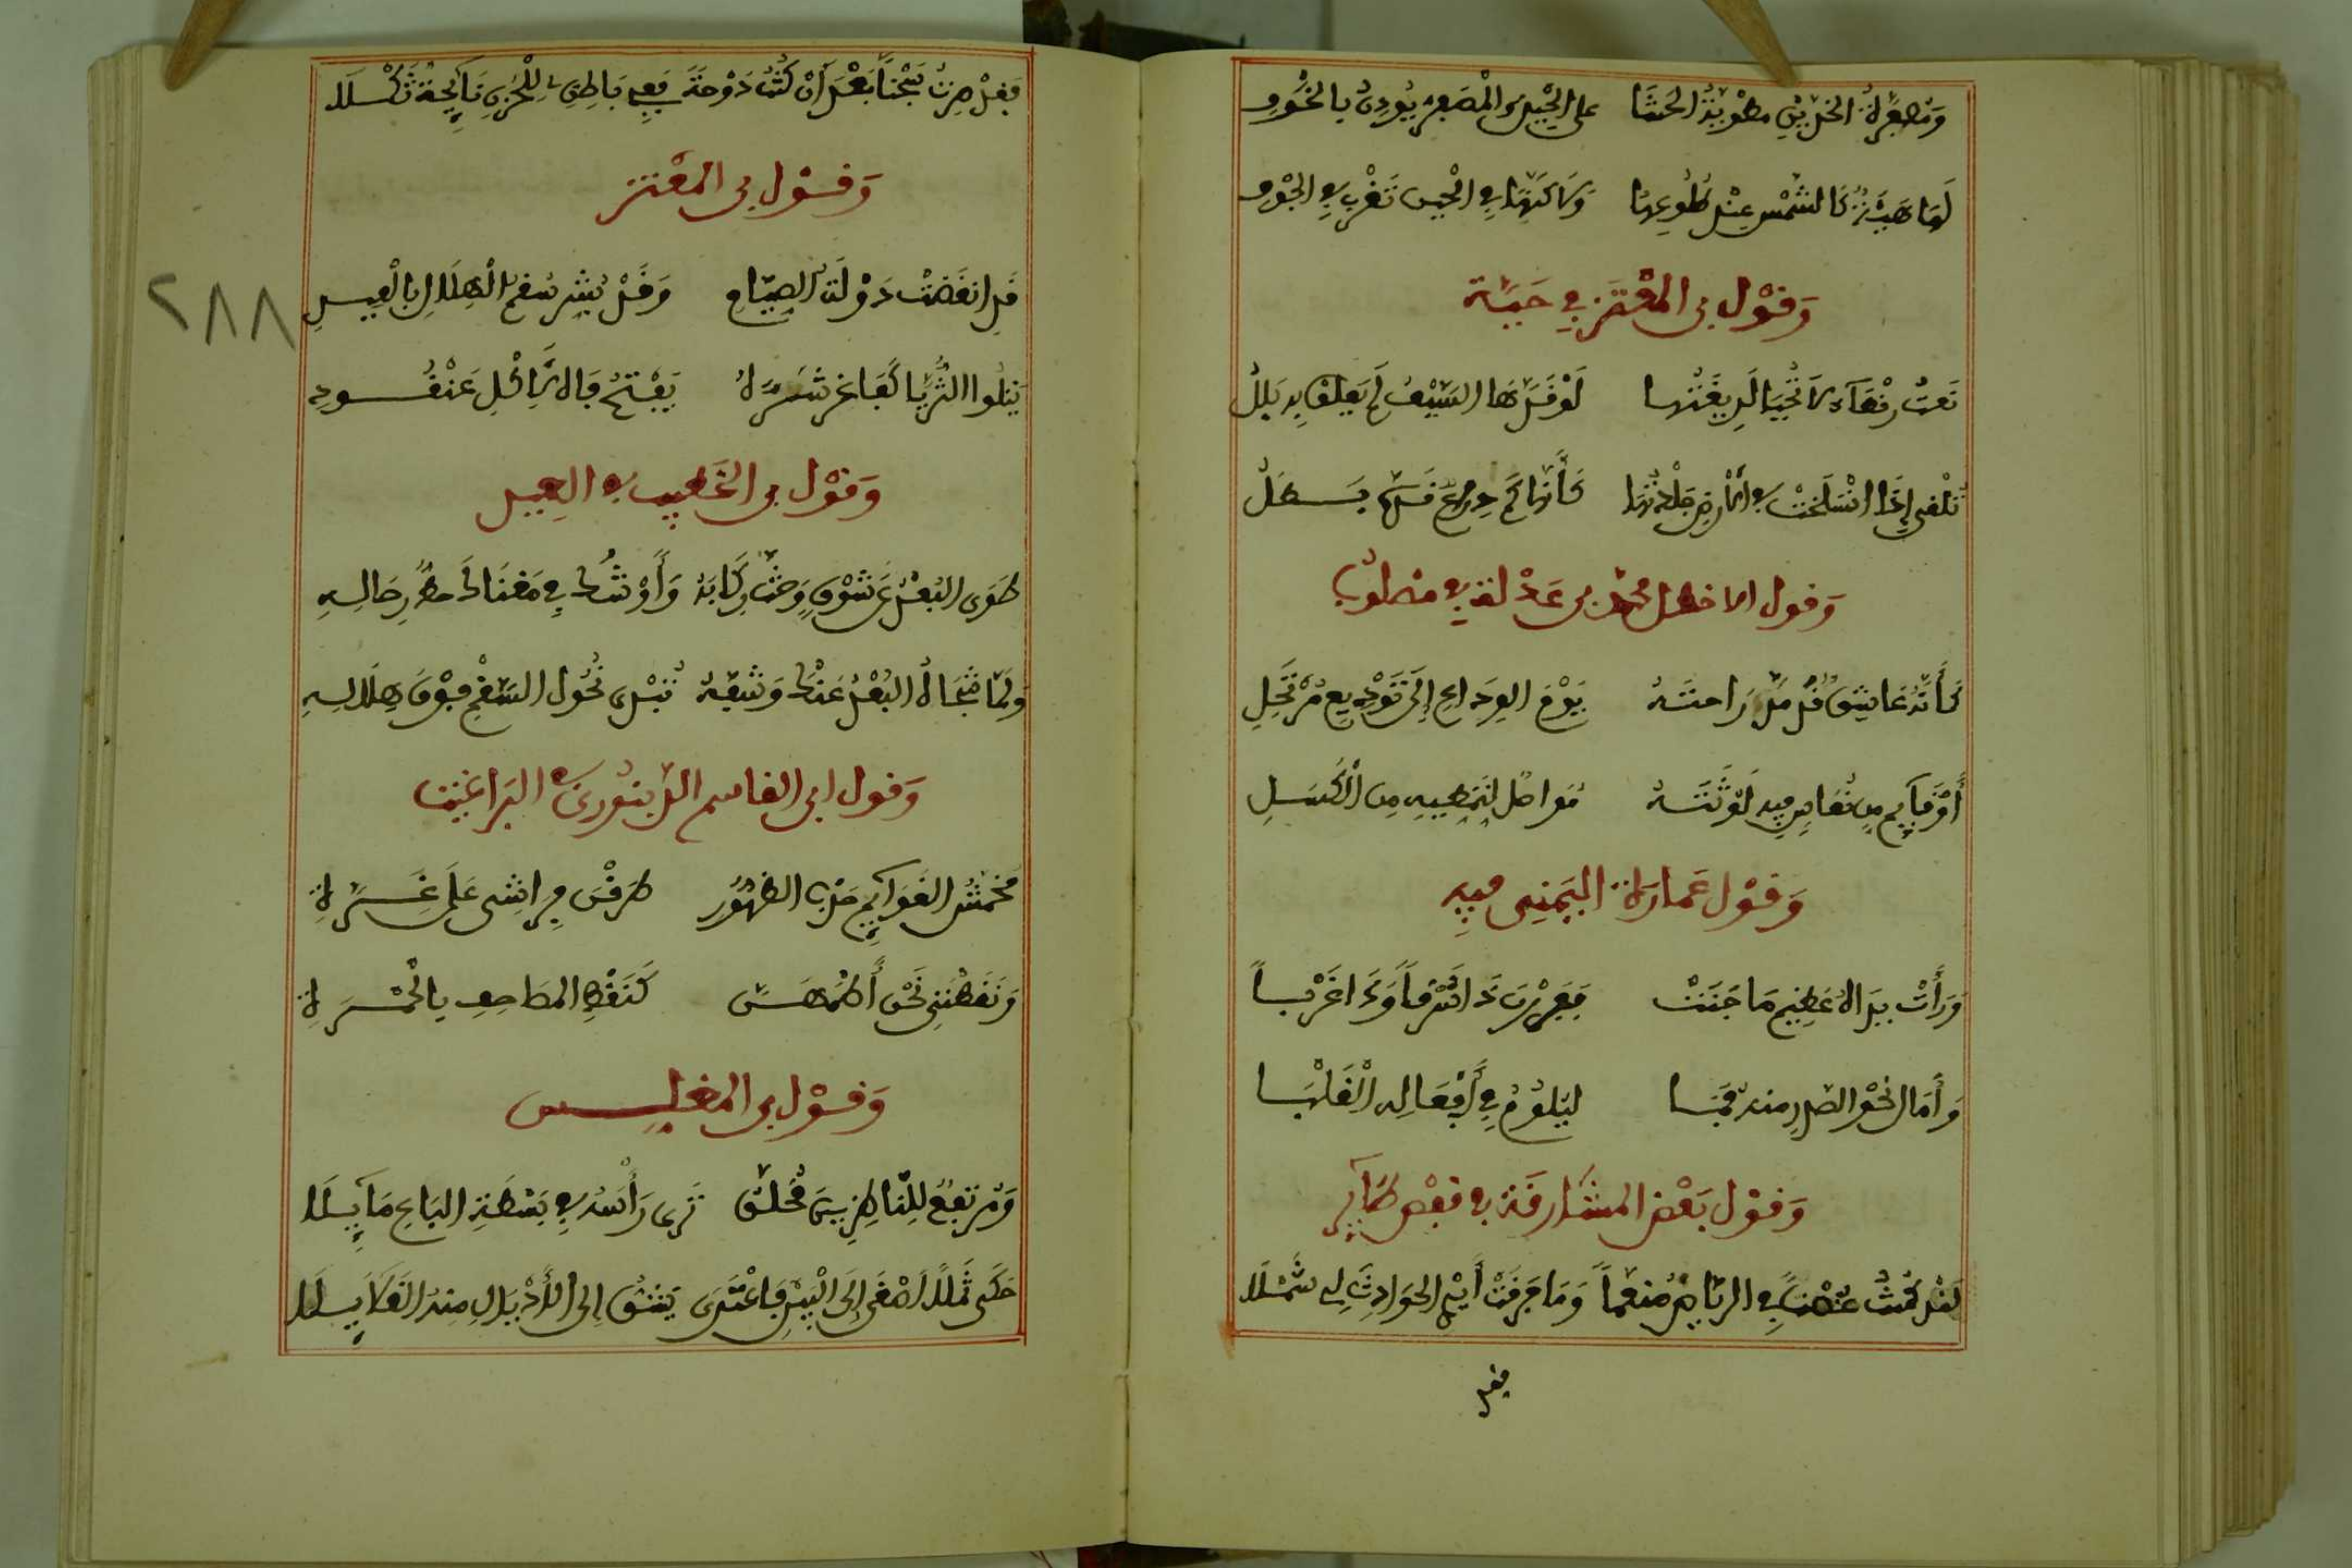 وَمُصْفَرَّةُ الخدّين مطويّةُ الحشَا على الجُبْنِ والمُصْفَرُّ يُوذِنُ بالخَوْفِ
لَهَا هَيْبَةٌ كالشَّمْسِ عِنْدَ طُلُوعِهَا وَلَاكنَّهَا في الحين تَغْرُبُ في الجَوْفِ
وَقَوْل بن المُعْتَز في حَيّة
نَعتُ رَقْطَاءَ لَا تُحْيَا لَدِيغَتُهَا لَوْ قَدَّهَا السَّيْفُ لَمْ يَعْلَقْ بِهِ بَلَلُ
تُلْقِي إِذَا انْسَلَخَتْ في الأرضِ جِلْدَتَهَا كأنّها كُمُّ دِرْعٍ قَدَّهُ بَطَلُ
وَقول الاخطل محمد بن في مصلوب
كَأَنّهُ عَاشِقٌ قَدْ مَدَّ رَاحتَهُ يَوْمَ الوِدَاعِ إِلَى تَوْدِيعِ مُرْتَحِلِ
أَوْ قَآيِمٌ مِن نُعَاسٍ فِيهِ لَوْثَتُهُ مُوَاصِلٌ لِتَمَطِّيهِ مِنَ الْكَسَلِ
وَقَوْل عَمارَة اليَمَنِي فيهِ
وَرَأَتْ يَدَاهُ عَظِيمَ مَا جَنَتْ فَفَرَرْنَ ذَا شَرْقاً وَذَا غَرْباً
وَأَمَالَ نَحْوَ الصَّدْرِ مِنهُ فَماً لِيَلُومَ فِي أَفْعَالِهِ الْقَلْبَا
وَقَوْل بَعْض المشَارقَة في قفص طاير
لَقَدْ كُنْتُ غُصْناً في الرّيَاضِ مُنعَّماً وَمَا عَرَفَتْ أَيْدِي الحَوَادِثِ لِي شَمْلَا
فقد
فَقَدْ صِرْتُ سِجْناً بَعْدَ أَنْ كُنْتُ دَوْحَةً فَفِي بَاطِنِي لِلْحُزْنِ نَآيِحَةٌ ثَكْلَا
وَقَوْل بن المُعْتز
قَدِ انقَضَتْ دَوْلَةُ الصِّيَامِ وَقَدْ بَشَّرَ سُقْمُ الْهِلَالِ بالْعِيدِ
يَتْلُوا الثُّرَيَّا كَفَاغِرٍ شَرِهٍ يَفْتَحُ فَاهُ لِأَكْلِ عَنْقُودِ
وَقَوْل بن الخَطيب في الفِيل
طَوَى البُعْدَ عَن شَوْقٍ وَحَثَّ رِكَابَهُ في مَغْنَاكَ حطّ رِحَالِهِ
وَلَمَّا شَجَاهُ البُعْدُ عَنْكَ وَشَفَّهُ تَبَدَّى نُحُول السُّقْمِ فَوْقَ هِلَالِهِ
وَقول ابي القاسم في البَراغيث
مُخَمَّشُ القَوَآيِم حُدْب الظهُور طَرَقْنَ فِرَاشِي عَلَى غِرَّةِ
وَنَقَّطْنَنِي كَنَقْطِ المصَاحِفِ بالْحُمْرَةِ
وَقَوْل بن المغلس
وَمُرْتَفِعٌ لِلنَّاظِرِينَ مُحَلّق تَرَى رَأْسَهُ في بَسْطَةِ البَاعِ مَآيِلَا
حَكَى ثَمِلاً أَصْغَى إِلَى يَشُقُّ إِلَى الأَذْيَالِ مِنهُ الغَلَايِلَا
٢٨٨